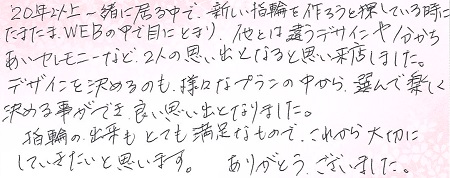 20年以上一緒に居る中で、新しい指輪を作ろうと探している時に
たまたまWEBの中で目にとまり、他とは違うデザインや分かち
あいセレモニーなど、2人の思い出となると思い来店しました。
デザインを決めるのも、様々なプランの中から、選んで楽しく
決める事ができ、良い思い出となりました。
指輪の出来もとても満足なもので、これから大切に
していきたいと思います。 ありがとうございました。